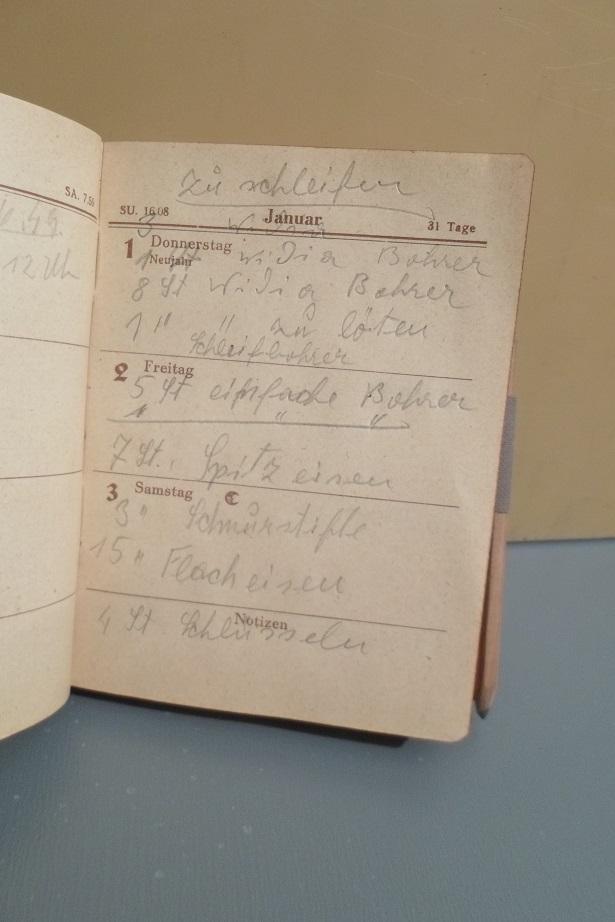 SA. 7.56
12 Uh
Zu schleifen
SU. 16.08 Januar 31 Tage
3 Widia
1 Donnerstag
Neujahr
1 St Widia Bohrer
8 St Widia Bohrer
1 " " zu löten
Schleifbohrer
2 Freitag
5 St einfache Bohrer
" " "
7 St. Spitzeisen
3 Samstag
3 " Schnurstifte
15 " Flacheisen
Notizen
4 St Schlüsseln